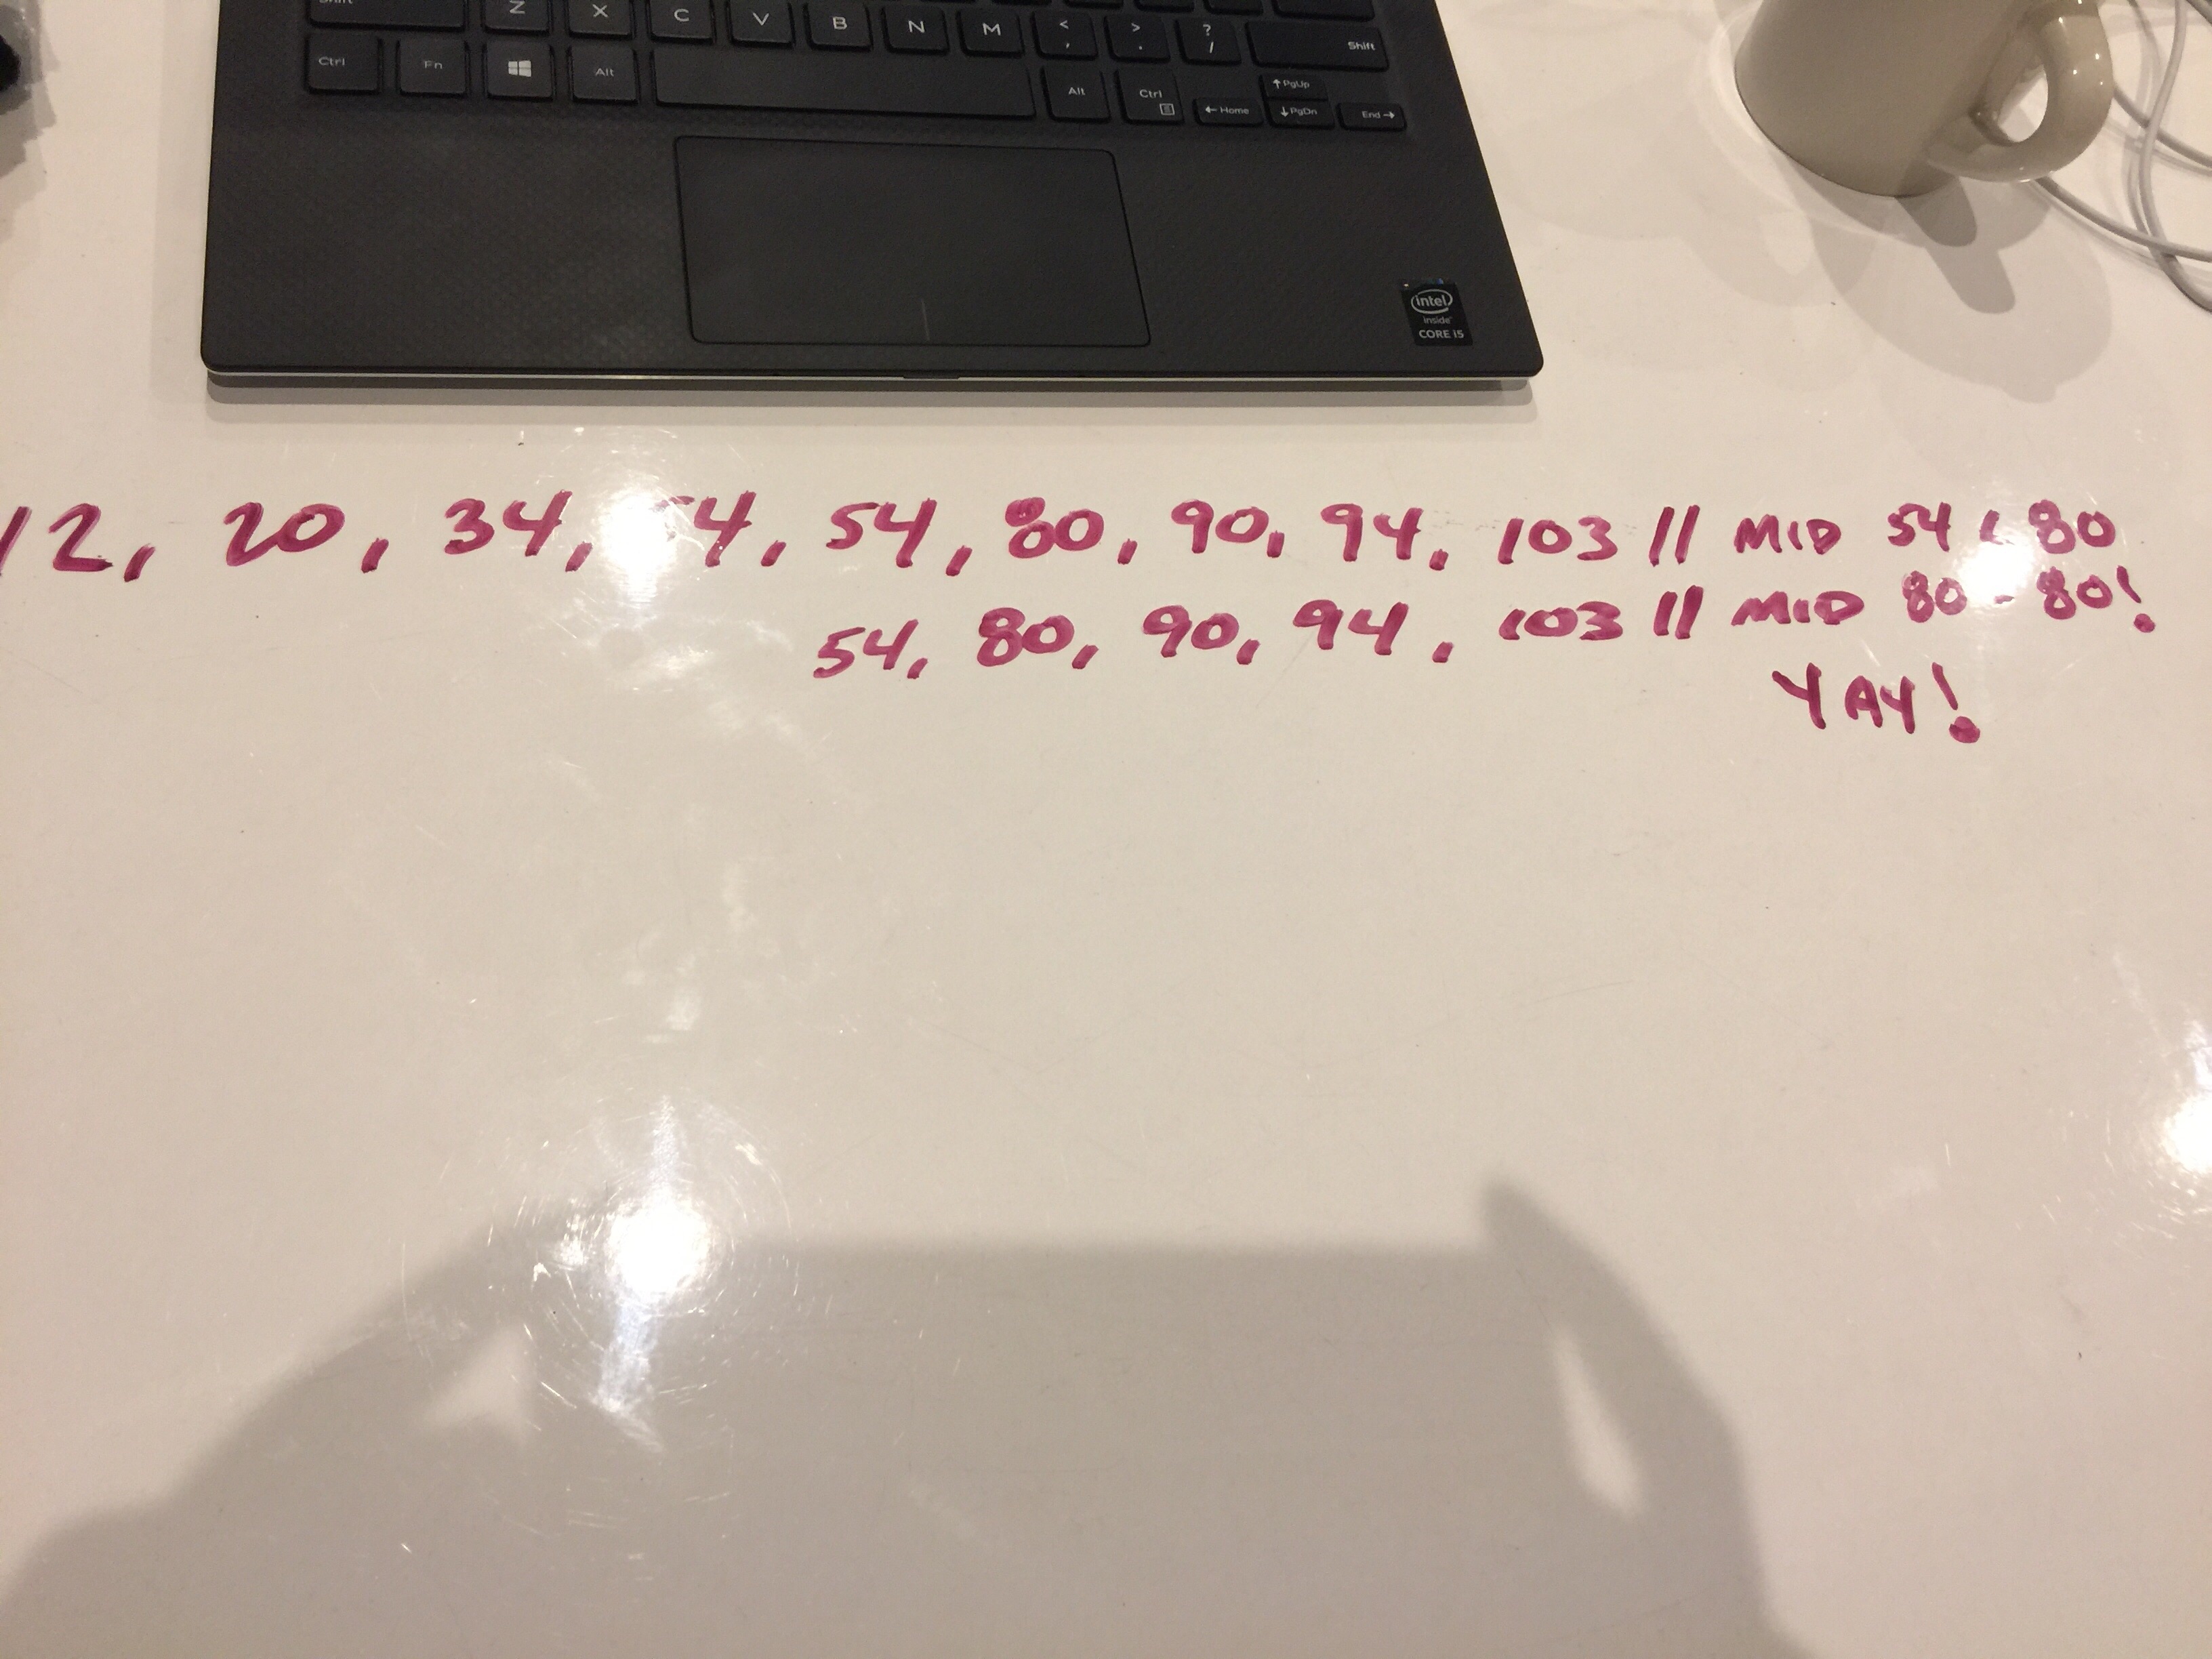 Shift Z X C V B N M < , > . ? / Shift
Ctrl Fn Alt Alt Ctrl ←Home ↑PgUp ↓PgDn End→
intel
inside
CORE i5
12, 20, 34, 54, 80, 90, 94, 103 // MID 54 < 80
54, 80, 90, 94, 103 // MID 80 - 80!
YAY!